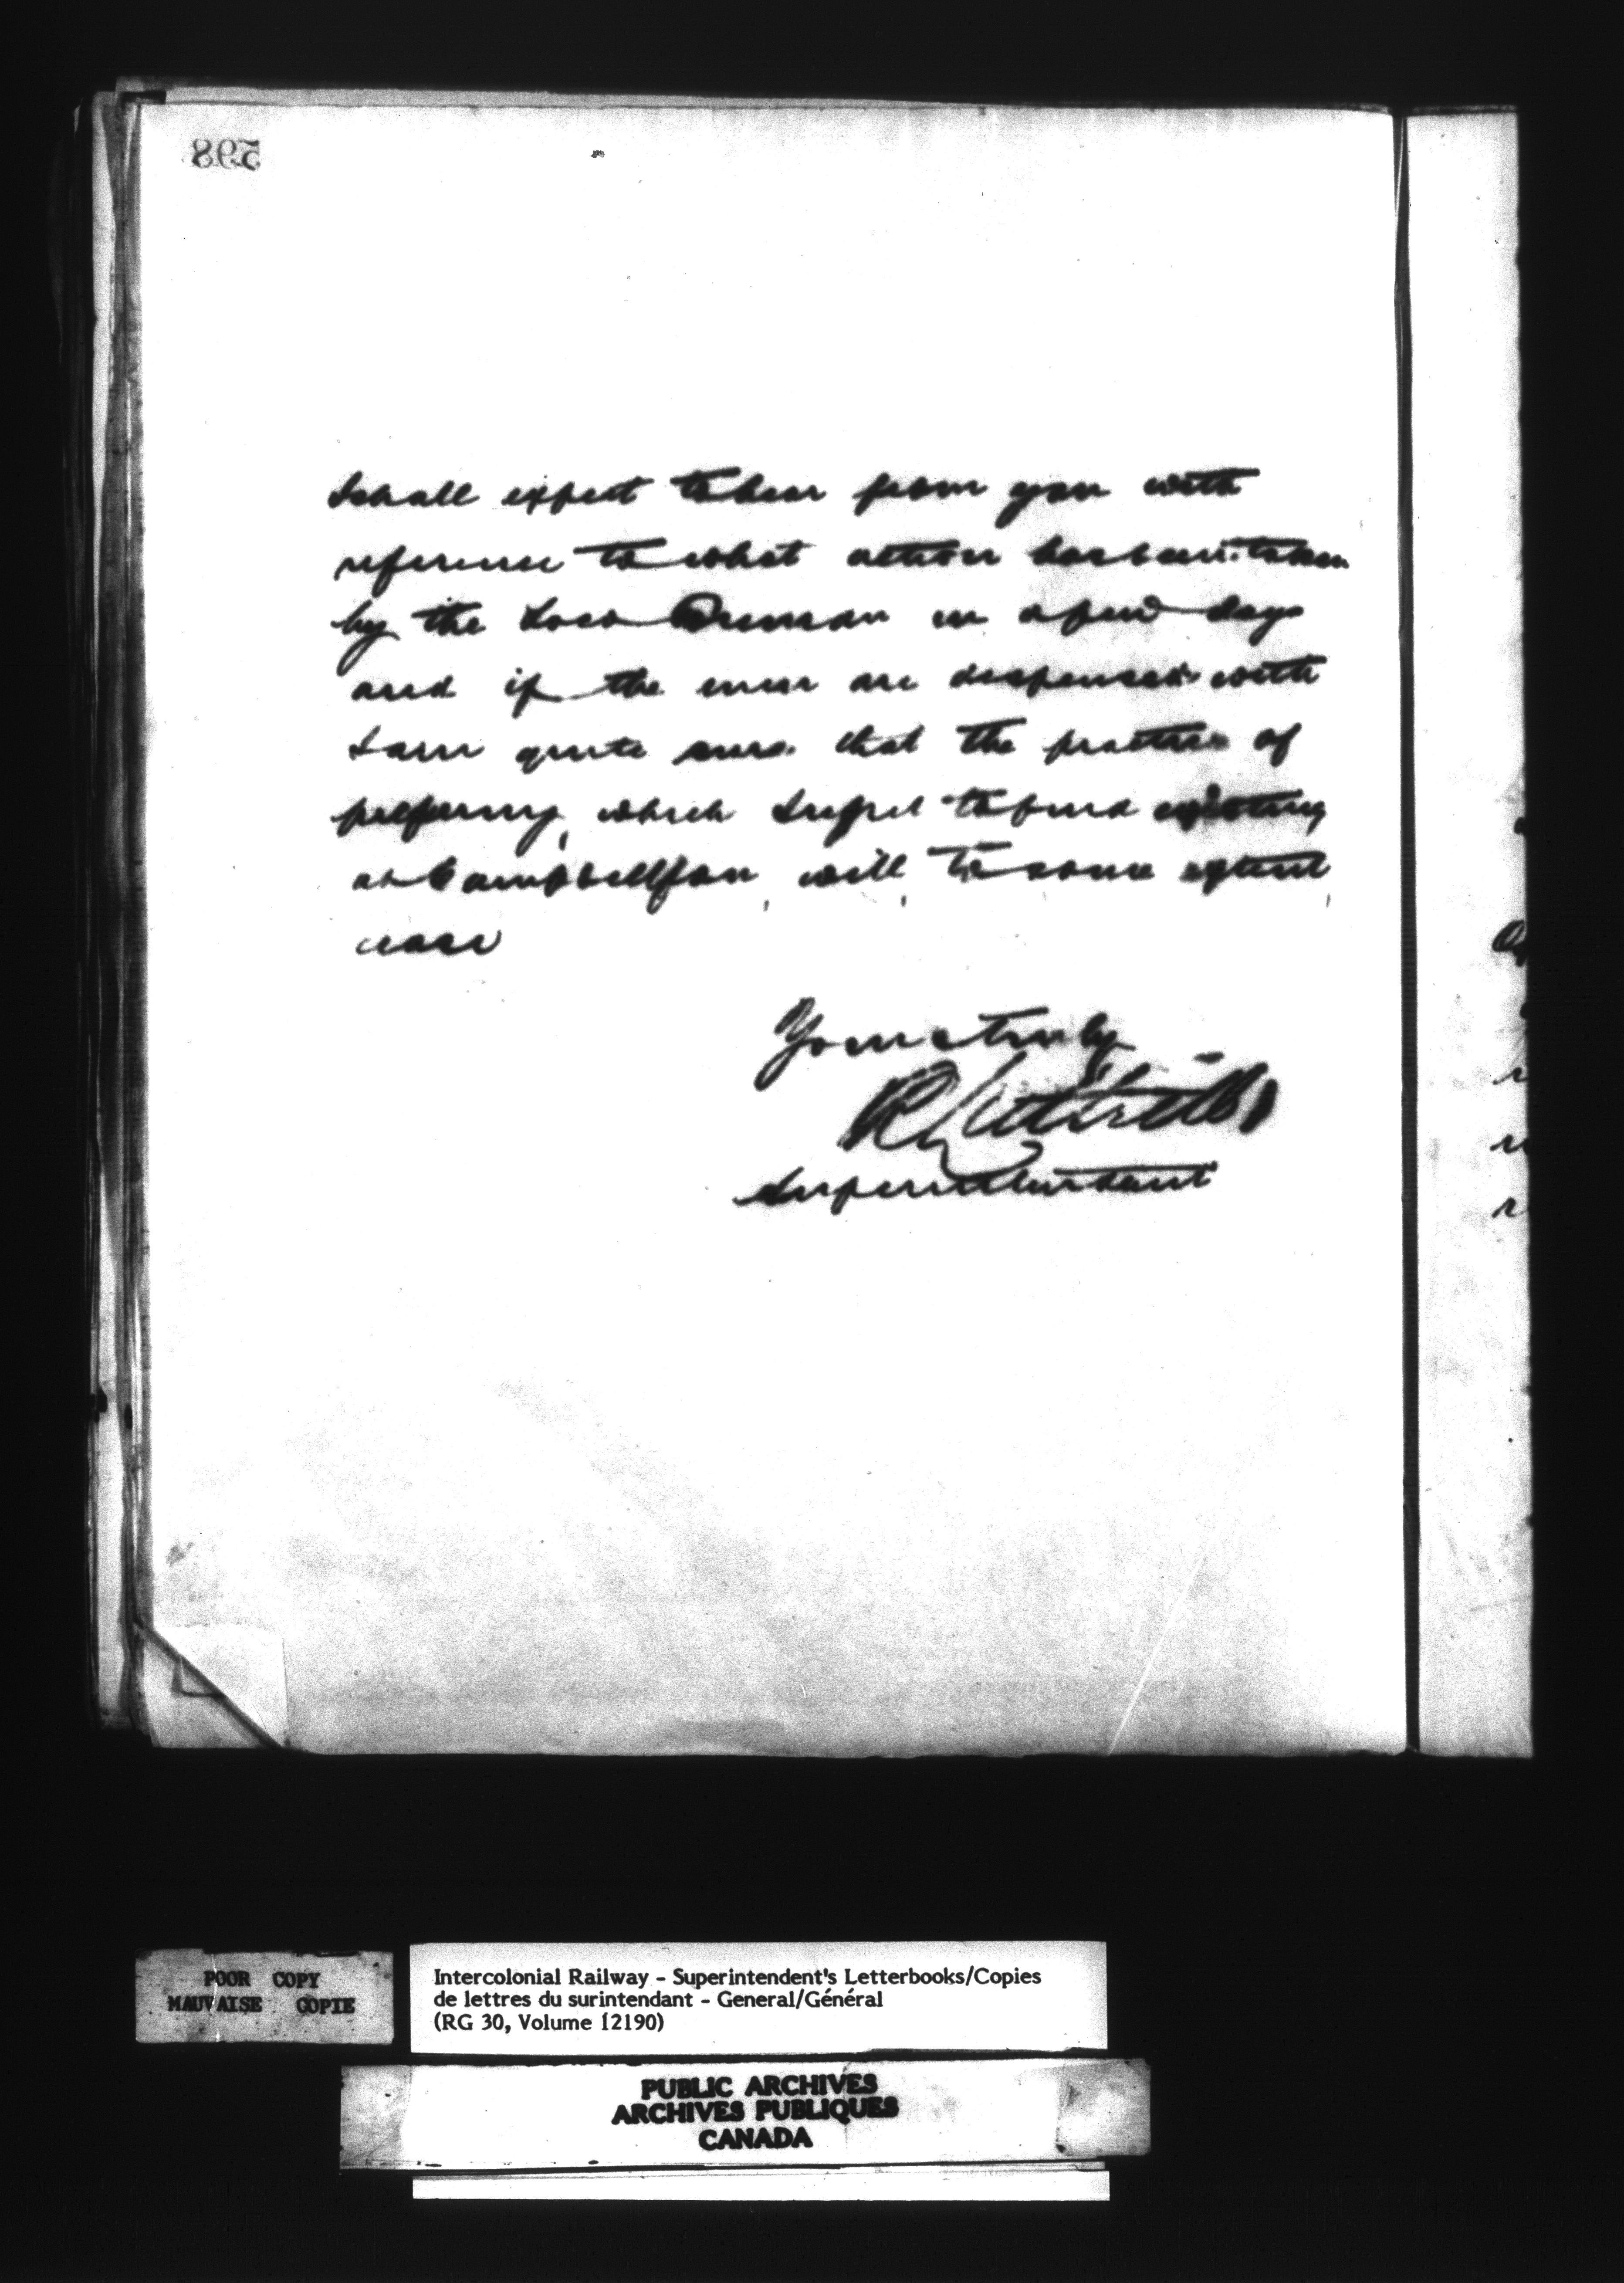 598
I shall expect to hear from you with
reference to what action has been taken
by the Loco Foreman in a few days
and if the men are dispensed with
I am quite sure that the practice of
pilfering, which I regret to find existing
at Campbellton, will to some extent
cease
Yours truly
Superintendent
POOR COPY
MAUVAISE COPIE
Intercolonial Railway - Superintendent's Letterbooks/Copies
de lettres du surintendant - General/Général
(RG 30, Volume 12190)
PUBLIC ARCHIVES
ARCHIVES PUBLIQUES
CANADA